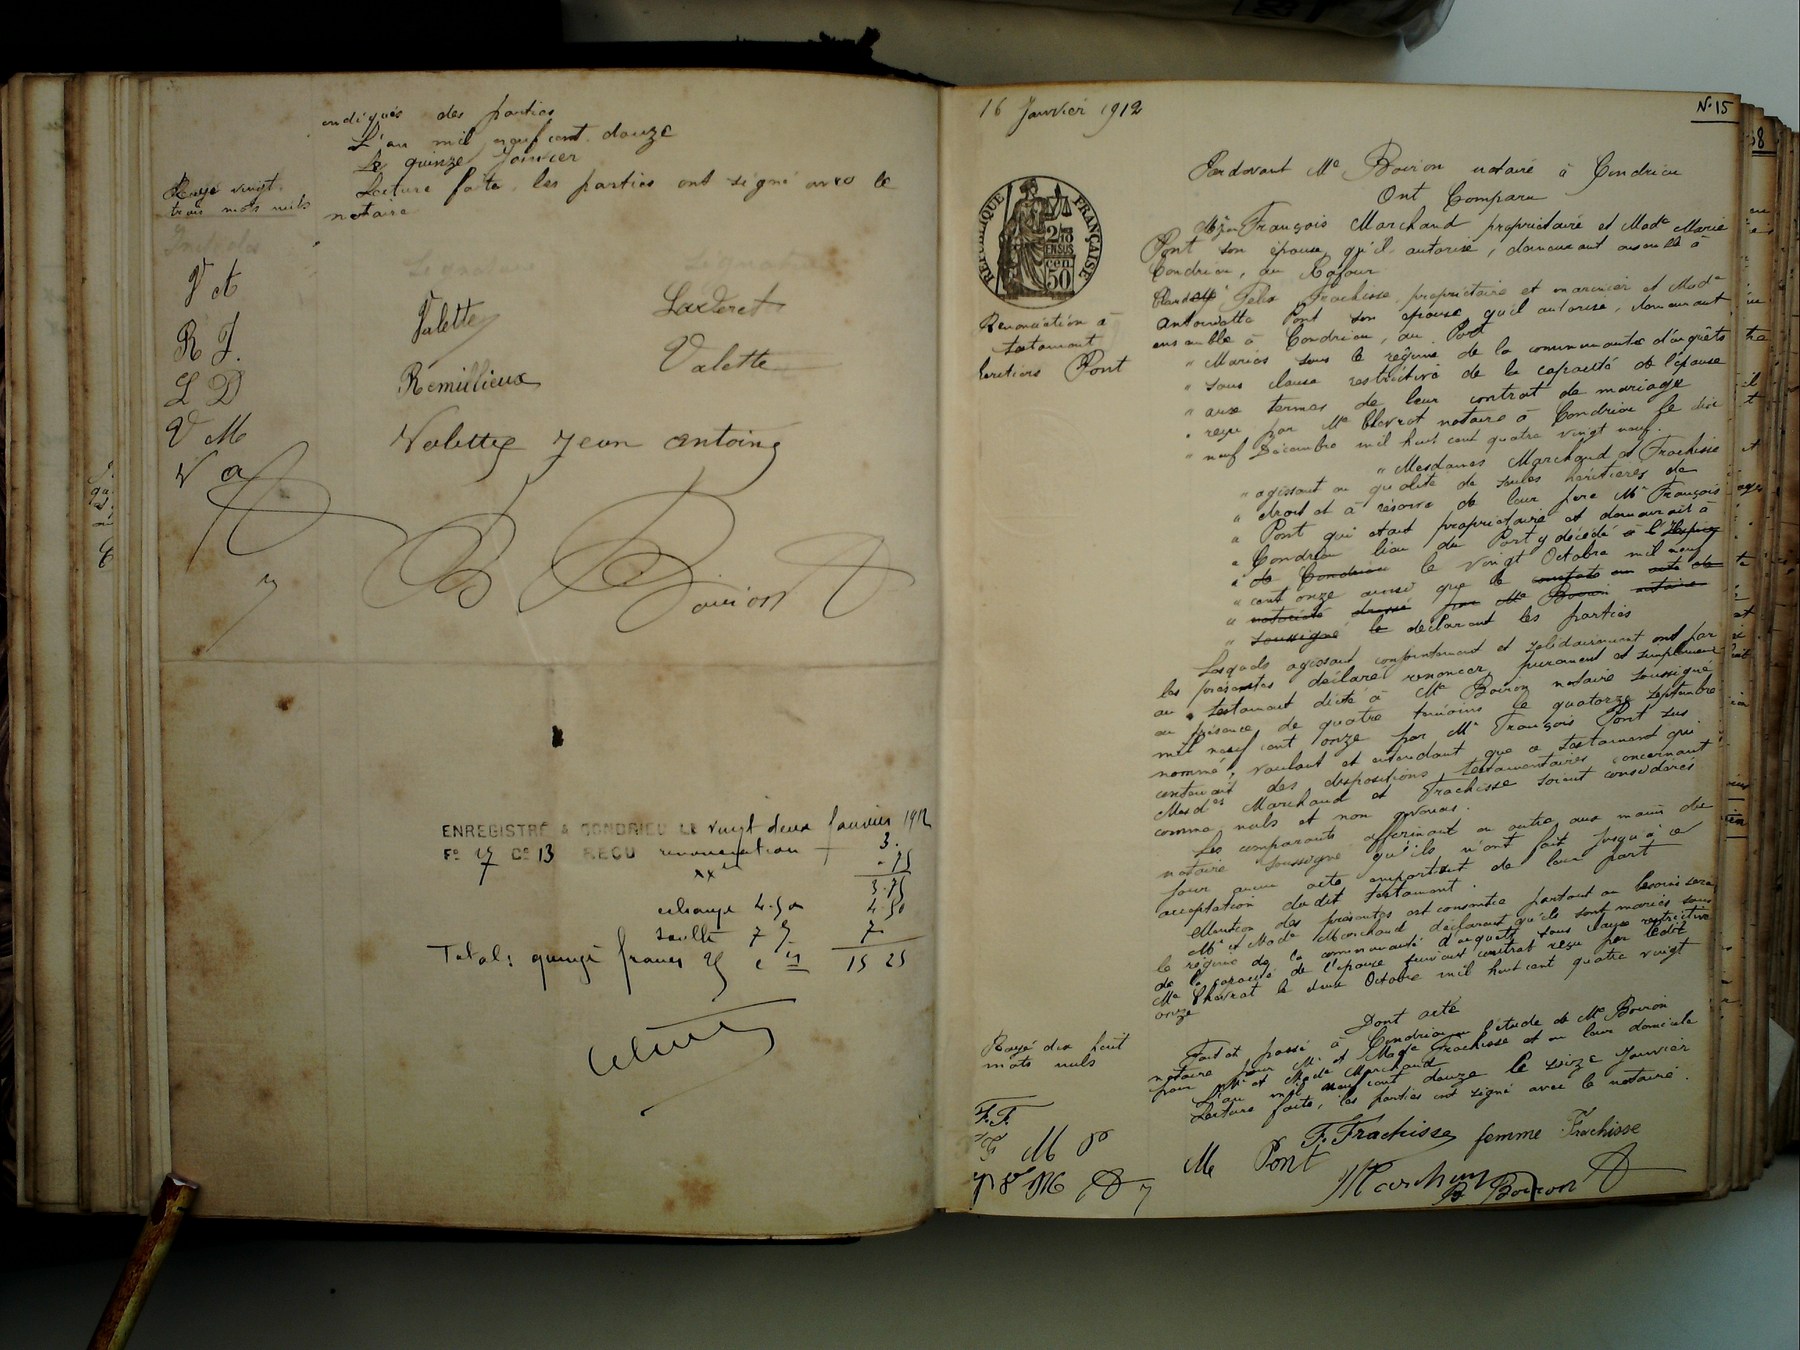 indiqués des parties
L'an mil neuf cent douze
Le quinze Janvier
Lecture faite, les parties ont signé avec le
notaire
Rayé vingt
trois mots nuls
Initiales
Signature
Signature
V A
R J.
L D
V M
V a
Valette
Larderet
Remillieux
Valette
Valette Jean Antoine
B Boiron
ENREGISTRÉ A CONDRIEU LE vingt deux Janvier 1912
Fo 47 Co 13 REÇU renonciation 3.
.75
3.75
echange 4.50 4.50
soulte 7 7
Total: quinze francs 25 cis 15 25
16 Janvier 1912
N. 15
RÉPUBLIQUE FRANÇAISE
2/10
EN SUS
50 cen
Renonciation à
testament
heritiers Pont
Pardevant Me Boiron notaire à Condrieu
Ont Comparu
Mr Jn François Marchand propriétaire et Made Marie
Pont son épouse qu'il autorise, demeurant ensemble à
Condrieu, au
Félix Frachisse propriétaire et marinier et Made
Antoinette Pont son épouse qu'il autorise, demeurant
ensemble à Condrieu, au Port
" Mariés sous le régime de la communauté d'acquêts
" sous clause restrictive de la capacité de l'épouse
" aux termes de leur contrat de mariage
" reçu par Me Chavrot notaire à Condrieu le dix
" neuf Décembre mil huit cent quatre vingt neuf.
" Mesdames Marchand et Frachisse
" agissant en qualité de seules héritières de
" droit et à réserve de leur père Mr François
" Pont qui était propriétaire et demeurait à
" Condrieu lieu du Port y décédé à l'
" de Condrieu le vingt Octobre mil neuf
" cent onze ainsi que le constate un acte de
" notoriété dressé par Me Boiron notaire
" soussigné le déclarent les parties
Lesquels agissant conjointement et solidairement ont par
les présentes déclaré renoncer purement et simplement
au testament dicté à Me Boiron notaire soussigné
en présence de quatre témoins le quatorze Septembre
mil neuf cent onze par Mr François Pont sus
nommé, voulant et entendant que ce testament qui
contenait des dispositions testamentaires concernant
Mesdes Marchand et Frachisse soient considérés
comme nuls et non avenus.
Les comparants affirmant en outre aux mains du
notaire soussigné qu'ils n'ont fait jusqu'à ce
jour aucun acte emportant de leur part
acceptation dudit testament.
Mention des présentes est consentie partout où besoin sera
Mr et Made Marchand déclarent qu'ils sont mariés sous
le régime de la communauté d'acquets sous clause restrictive
de la capacité de l'épouse suivant contrat reçu par ledit
Me Chavrot le deux Octobre mil huit cent quatre vingt
onze
Dont acte
Fait et passé à Condrieu en l'étude de Me Boiron
notaire pour Mr et Made Frachisse et en leur domicile
pour Mr et Made Marchand
L'an mil neuf cent douze le seize Janvier
Lecture faite, les parties ont signé avec le notaire.
Rayé dix huit
mots nuls
F.F.
F M P
F. Frachisse femme Frachisse
M Pont
Marchand
B Boiron